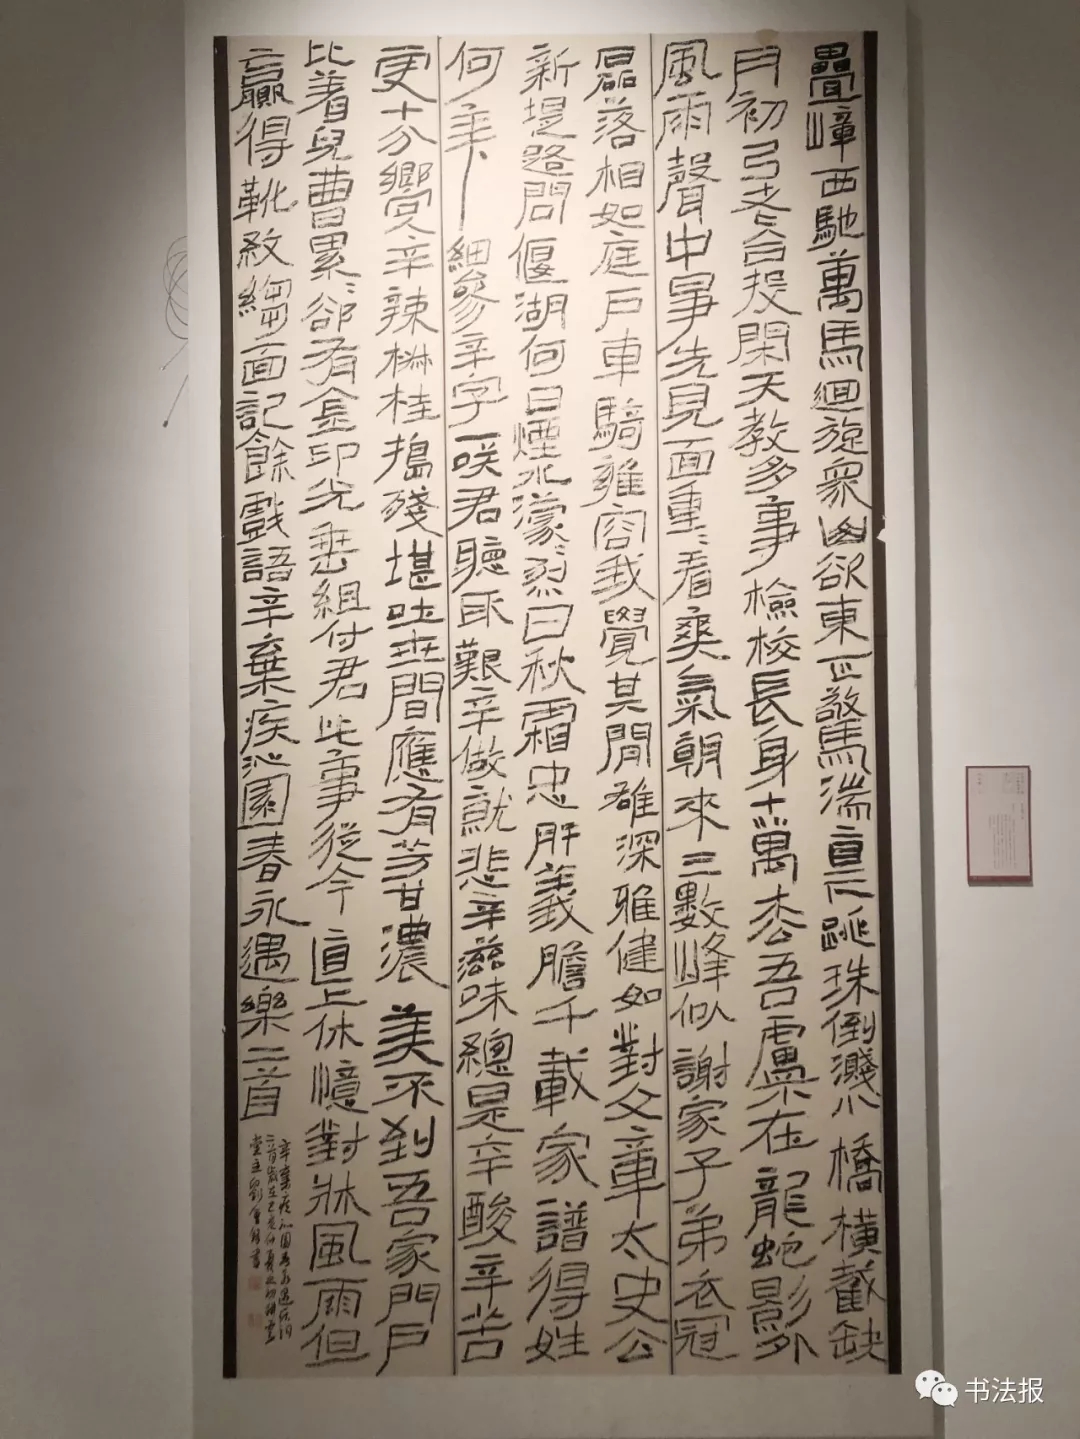 疊嶂西馳萬馬迴旋眾山欲東正驚湍直下跳珠倒濺小橋橫截缺
月初弓老合投閑天教多事檢校長身十萬松吾盧小在龍蛇影外
風雨聲中爭先見面重〻看爽氣朝來三數峰似謝家子弟衣冠
磊落相如庭戶車騎雍容我覺其間雄深雅健如對文章太史公
新堤路問偃湖何日煙水濛〻烈日秋霜忠肝義膽千載家譜得姓
何年細參辛字一笑君聽取艱辛做就悲辛滋味總是辛酸辛苦
更十分嚮人辛辣椒桂搗殘堪吐世間應有芳甘濃美不到吾家門戶
比著兒曹累〻卻有金印光垂組付君此事從今直上休憶對牀風雨但
贏得靴紋縐面記餘戲語辛棄疾沁園春永遇樂二首
辛棄疾沁園春永遇樂詞
二首歲在己亥仲夏之初
堂主劉書
书法报